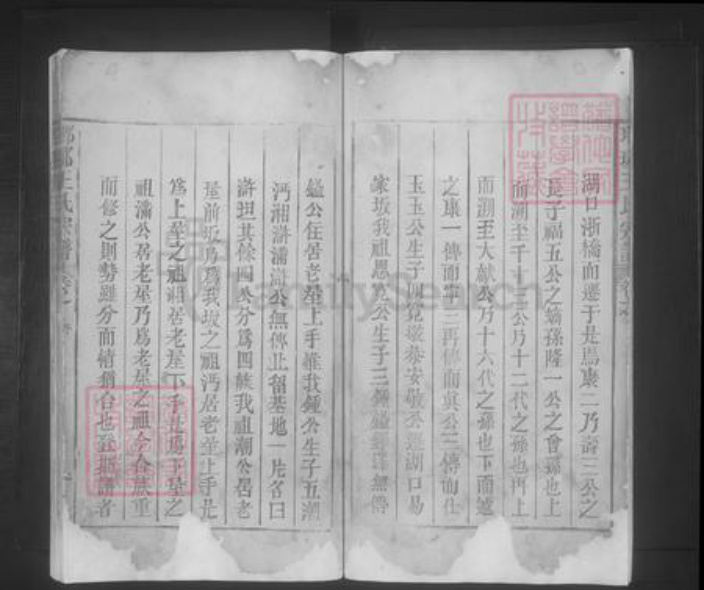 湖口淅橋而遷于是馬康二乃壽三公之
長子福五公之嫡孫隆一公之曾孫也上
而溯至千十三公乃十二代之孫也再上
而溯至大獻公乃十六代之孫也下而遞
之康一傳而寧三再傳而眞公三傳而仕
玉玉公生子四寬敬恭安敬公遷湖口易
家坂我祖思寬公生子三鍾鎰無傳
鎰公住居老屋上手惟我鍾公生子五潮
沔湘滸滿滸公無傳止留基地一片名曰
滸坦其餘四公分爲四族我祖潮公居老
屋前坂乃爲我坂之祖沔居老屋上手是
爲上屋之祖湘居老屋下手是爲下屋之
祖滿公居老屋乃爲老屋之祖今合族重
而修之則勢雖分而情猶合也登斯譜者
王氏宗譜
FamilySearch